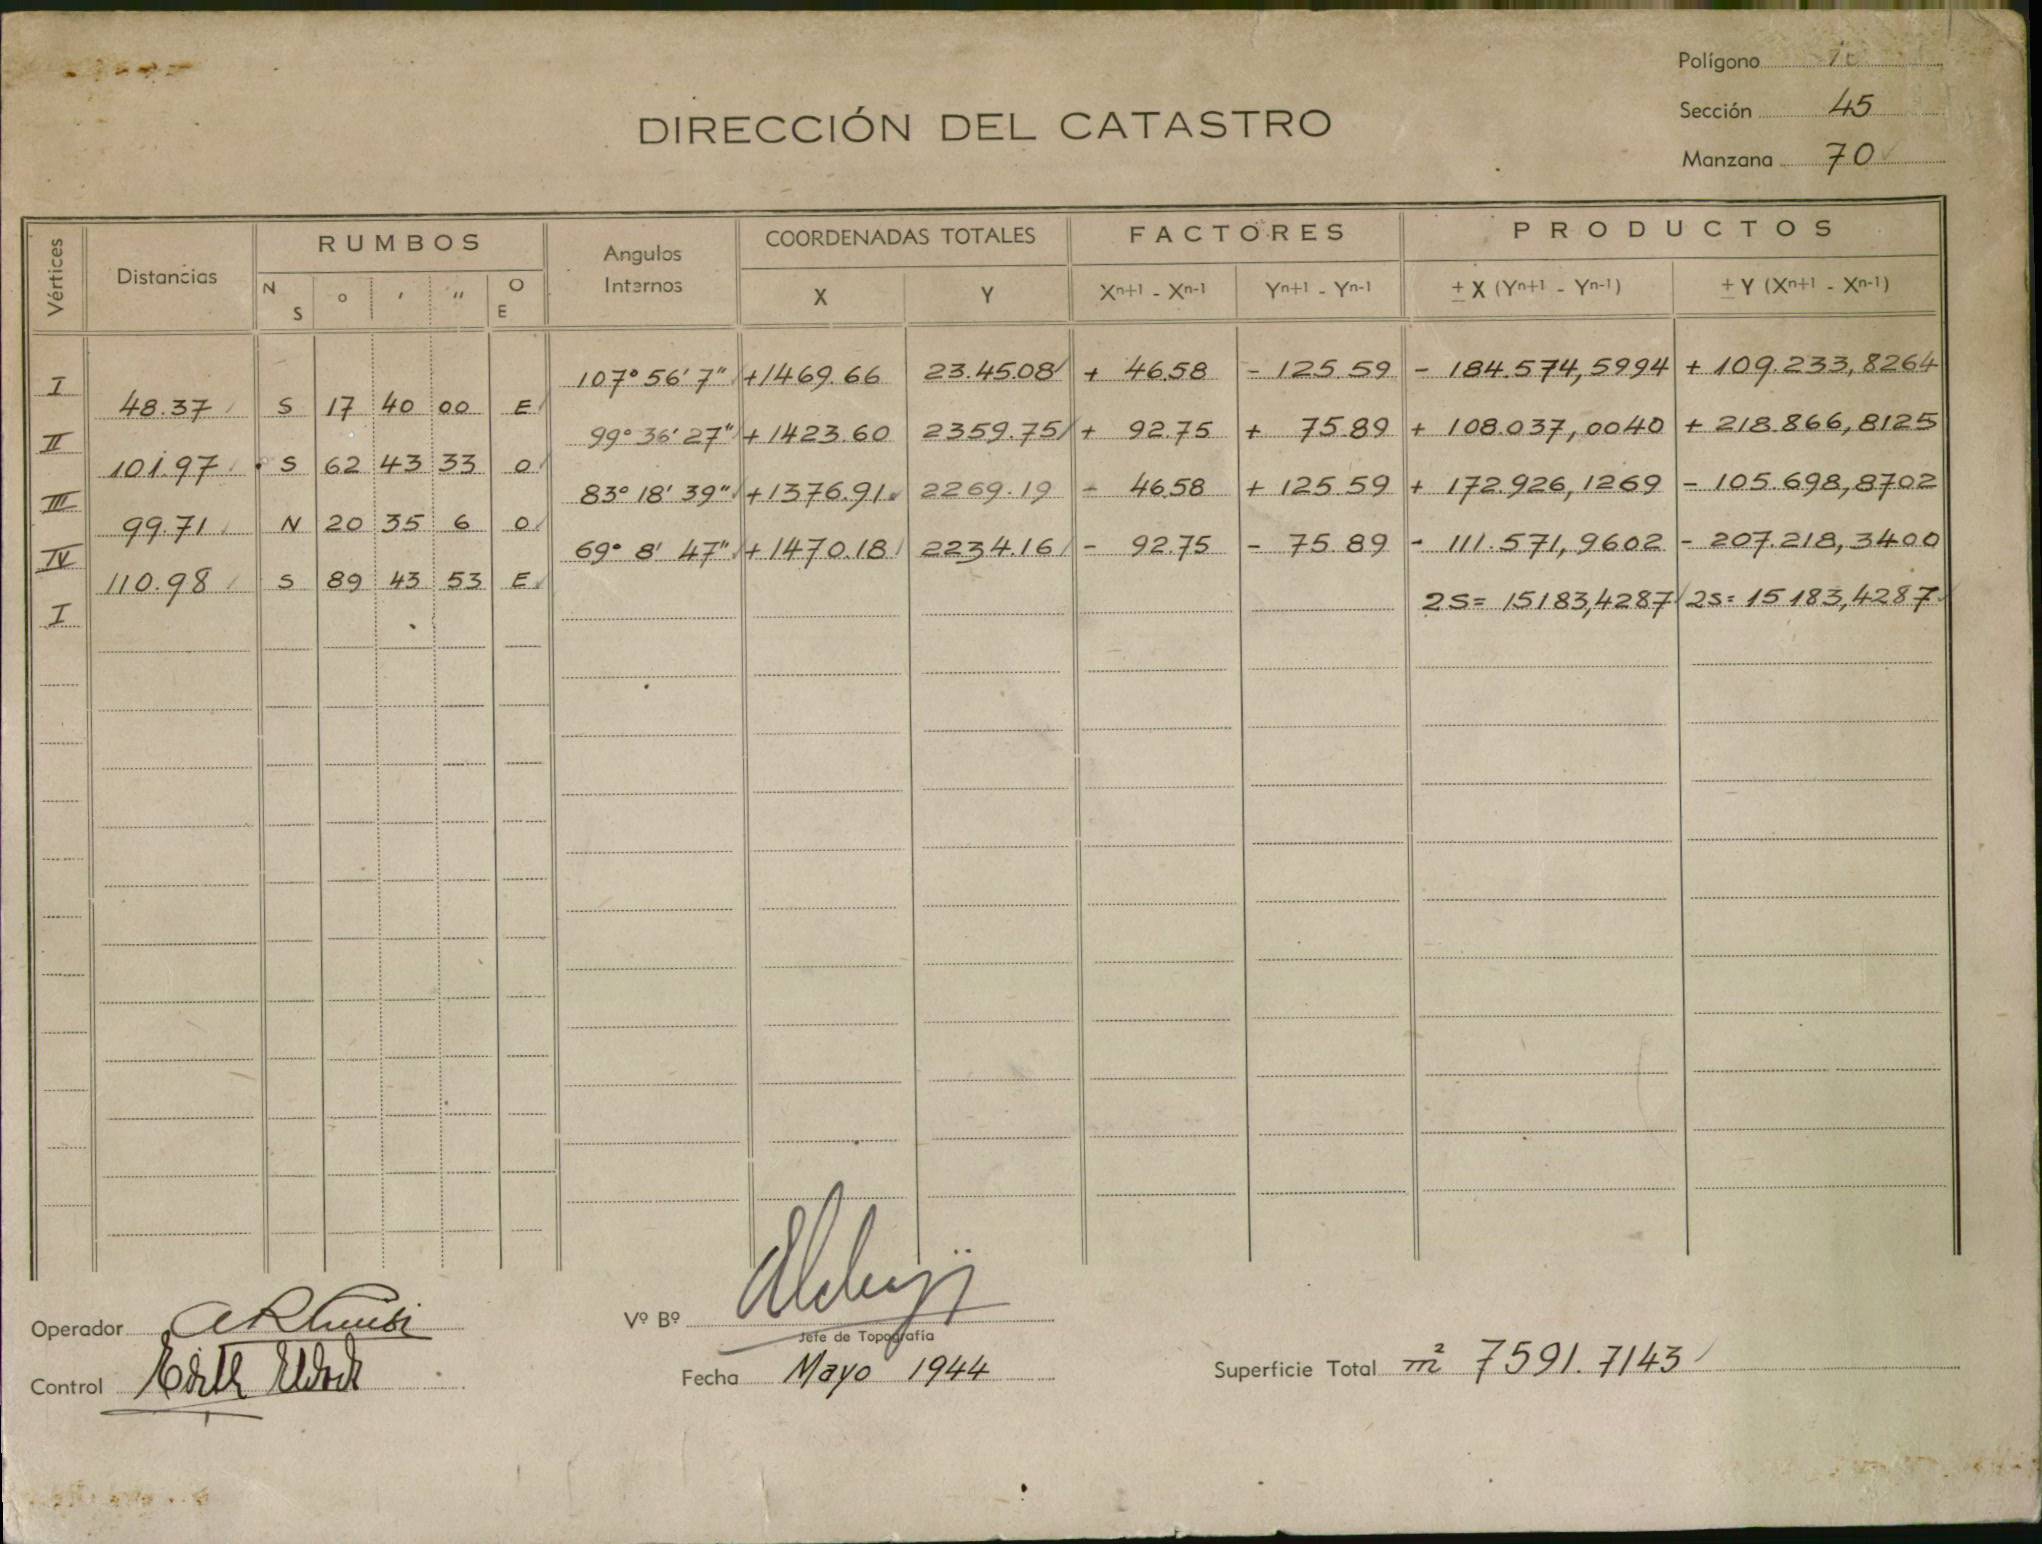 Polígono
Sección 45
Manzana 70
DIRECCIÓN DEL CATASTRO
Vértices Distancias RUMBOS Angulos Internos COORDENADAS TOTALES FACTORES PRODUCTOS
N S o ' " O E X Y Xn+1 - Xn-1 Yn+1 - Yn-1 ± X (Yn+1 - Yn-1) ± Y (Xn+1 - Xn-1)
I 107° 56' 7" +1469.66 23.45.08 + 46.58 - 125.59 - 184.574,5994 + 109.233,8264
48.37 S 17 40 00 E
II 99° 36' 27" +1423.60 2359.75 + 92.75 + 75.89 + 108.037,0040 + 218.866,8125
101.97 S 62 43 33 O
III 83° 18' 39" +1376.91 2269.19 - 46.58 + 125.59 + 172.926,1269 - 105.698,8702
99.71 N 20 35 6 O
IV 69° 8' 47" +1470.18 2234.16 - 92.75 - 75.89 - 111.571,9602 - 207.218,3400
110.98 S 89 43 53 E
I 2S= 15183,4287 2S= 15183,4287
Operador
Vº Bº
Jefe de Topografía
Control
Fecha Mayo 1944
Superficie Total m² 7591.7143